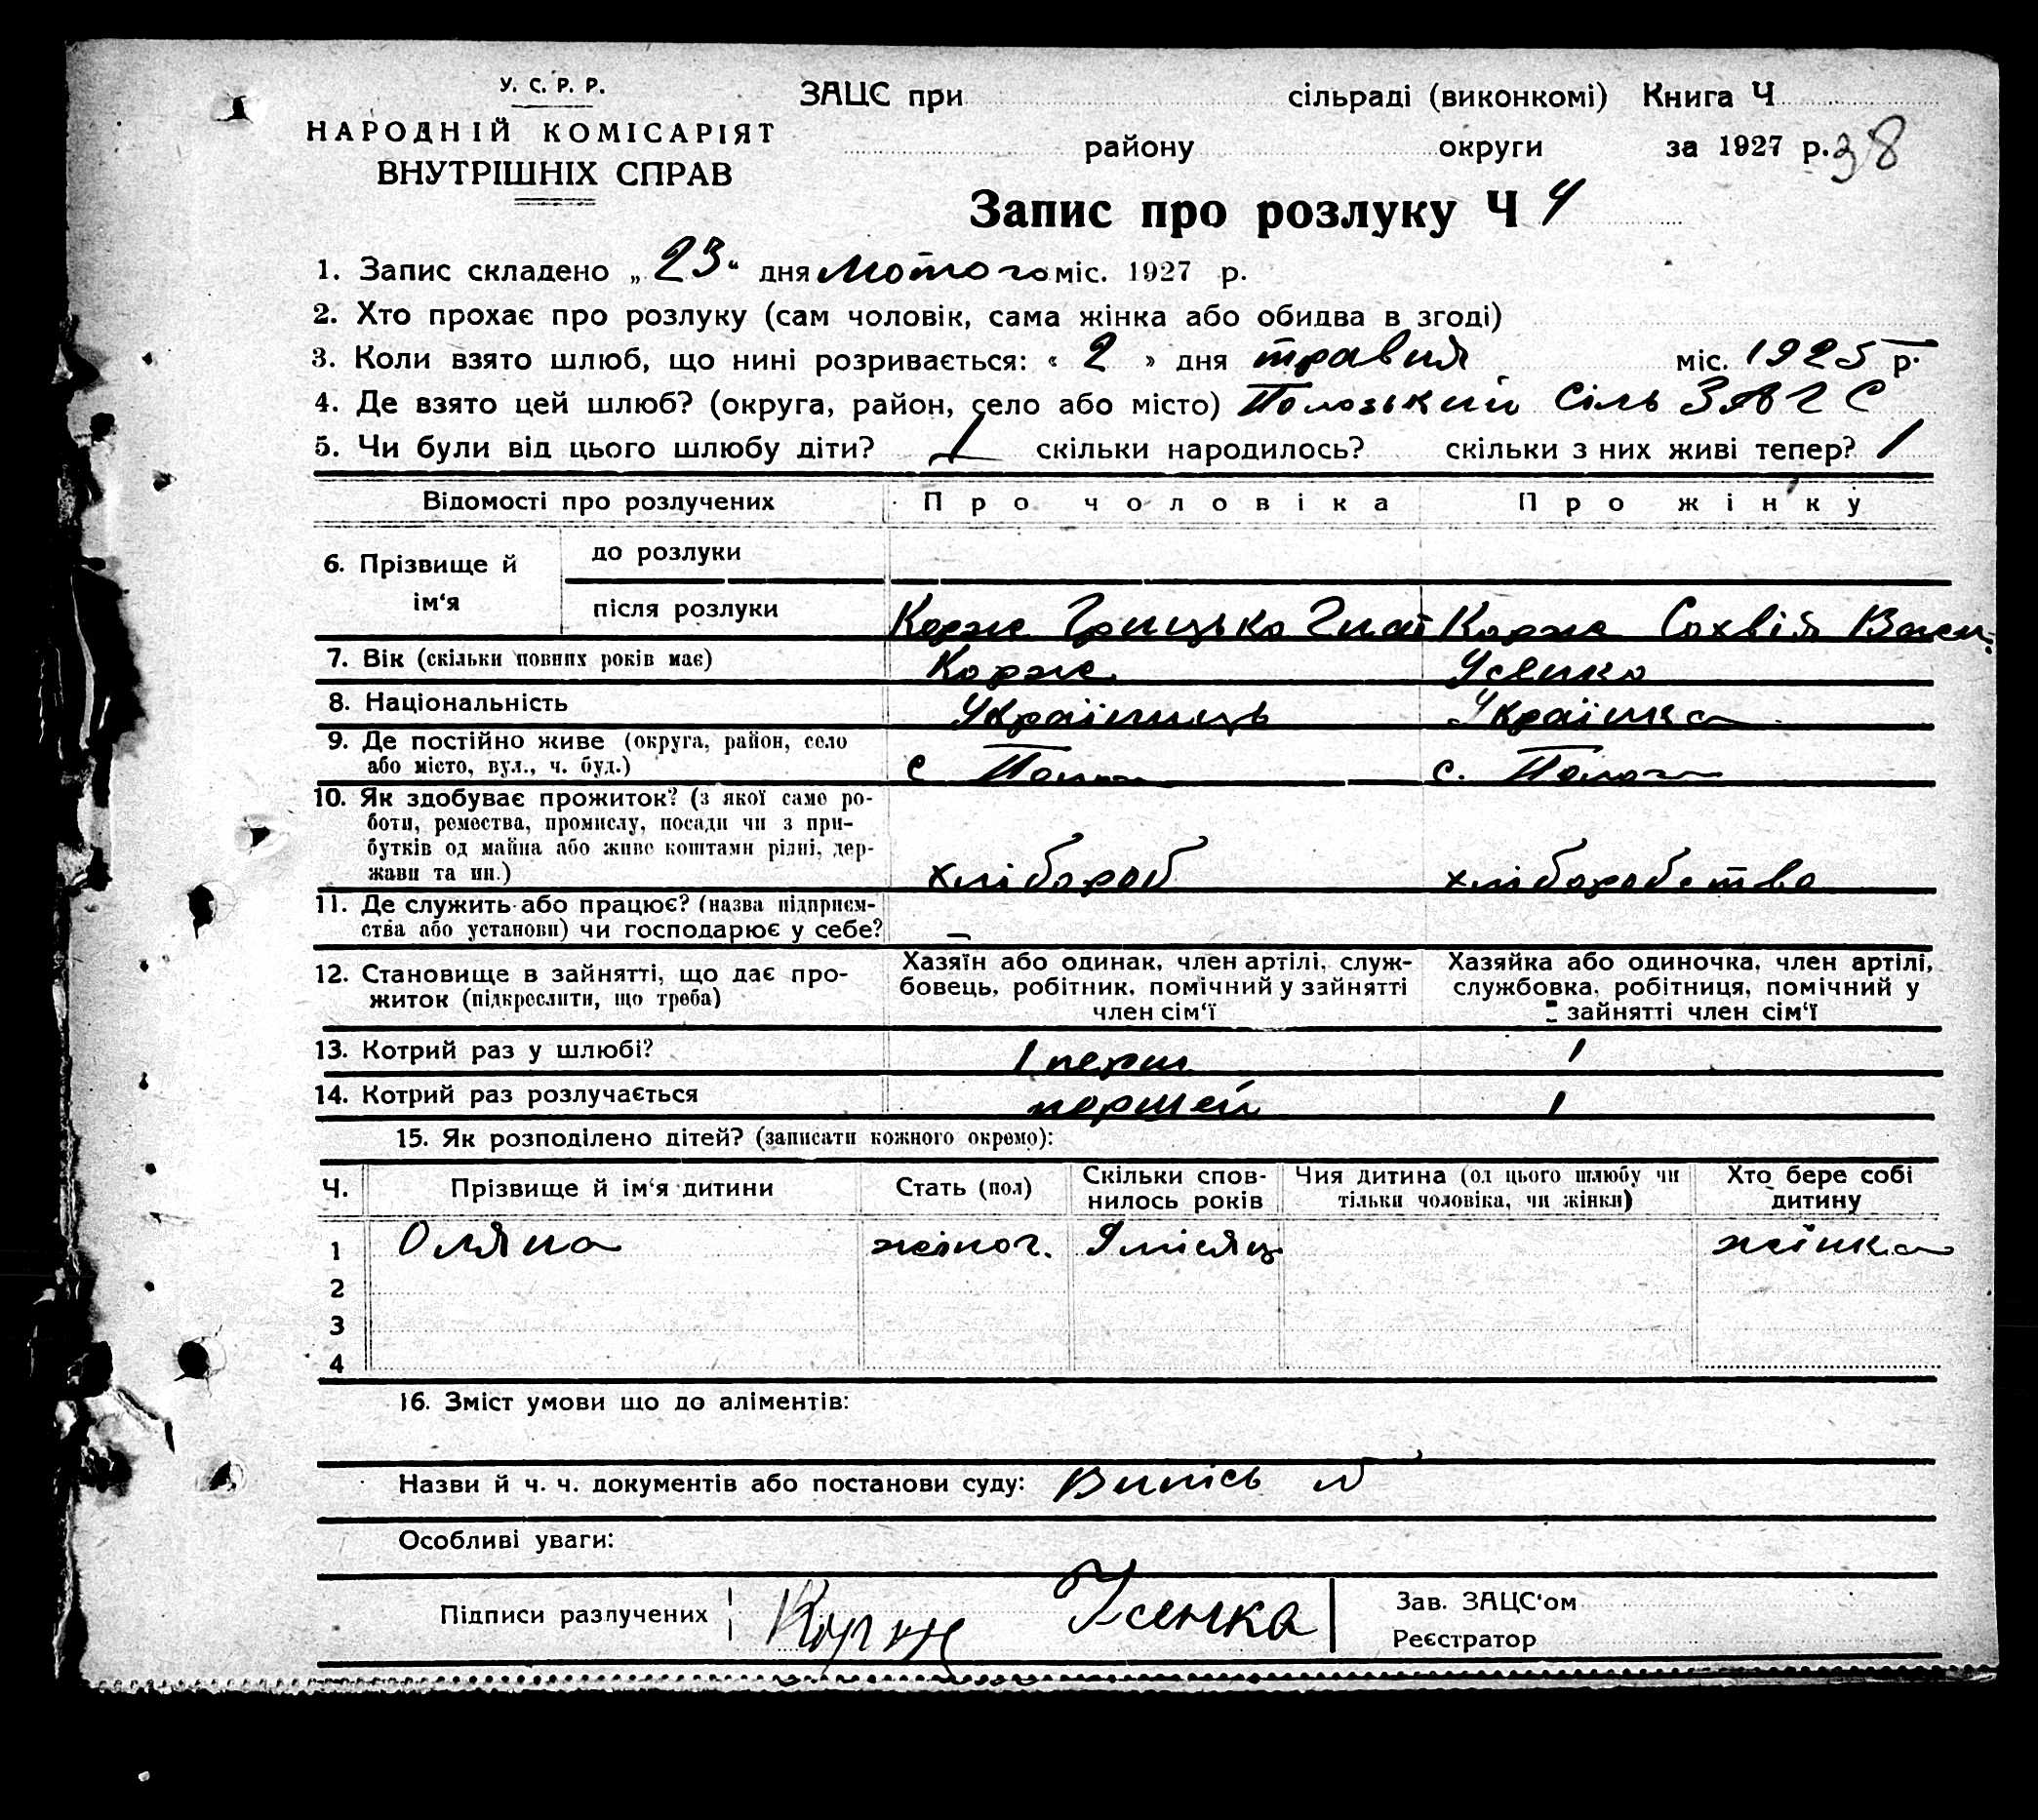 У. С. Р. Р.
НАРОДНІЙ КОМІСАРІЯТ
ВНУТРІШНІХ СПРАВ
ЗАЦС при сільраді (виконкомі) Книга Ч
району округи за 1927 р. 38
Запис про розлуку Ч 4
1. Запис складено „ 23 “ дня Лютого міс. 1927 р.
2. Хто прохає про розлуку (сам чоловік, сама жінка або обидва в згоді)
3. Коли взято шлюб, що нині розривається: « 2 » дня травня міс. 1925 р.
4. Де взято цей шлюб? (округа, район, село або місто) Полозький Сіль ЗАГС
5. Чи були від цього шлюбу діти? 1 скільки народилось? скільки з них живі тепер? 1
Відомості про розлучених Про чоловіка Про жінку
6. Прізвище й ім‘я
до розлуки
після розлуки Корж Грицько Гнат Корж Сохвія Васи
7. Вік (скільки повних років має) Корж Усенко
8. Національність Українець Українка
9. Де постійно живе (округа, район, село
або місто, вул., ч. буд.) с с. Пологи
10. Як здобуває прожиток? (з якої саме ро-
боти, ремества, промислу, посади чи з при-
бутків од майна або живе коштами рідні, дер-
жави та ин.) хлібороб хліборобство
11. Де служить або працює? (назва підприєм-
ства або установи) чи господарює у себе? –
12. Становище в зайнятті, що дає про-
житок (підкреслити, що треба)
Хазяїн або одинак, член артілі, служ-
бовець, робітник, помічний у зайнятті
член сім‘ї
Хазяйка або одиночка, член артілі,
службовка, робітниця, помічний у
зайнятті член сім‘ї
13. Котрий раз у шлюбі? 1 перш 1
14. Котрий раз розлучається першей 1
15. Як розподілено дітей? (записати кожного окремо):
Ч. Прізвище й ім‘я дитини Стать (пол) Скільки спов-
нилось років Чия дитина (од цього шлюбу чи
тільки чоловіка, чи жінки) Хто бере собі
дитину
1 Оляна жіноч. 9 місяц жінка
2
3
4
16. Зміст умови що до аліментів:
Назви й ч. ч. документів або постанови суду: Випісь
Особливі уваги:
Підписи разлучених Корж Усенка
Зав. ЗАЦС‘ом
Реєстратор